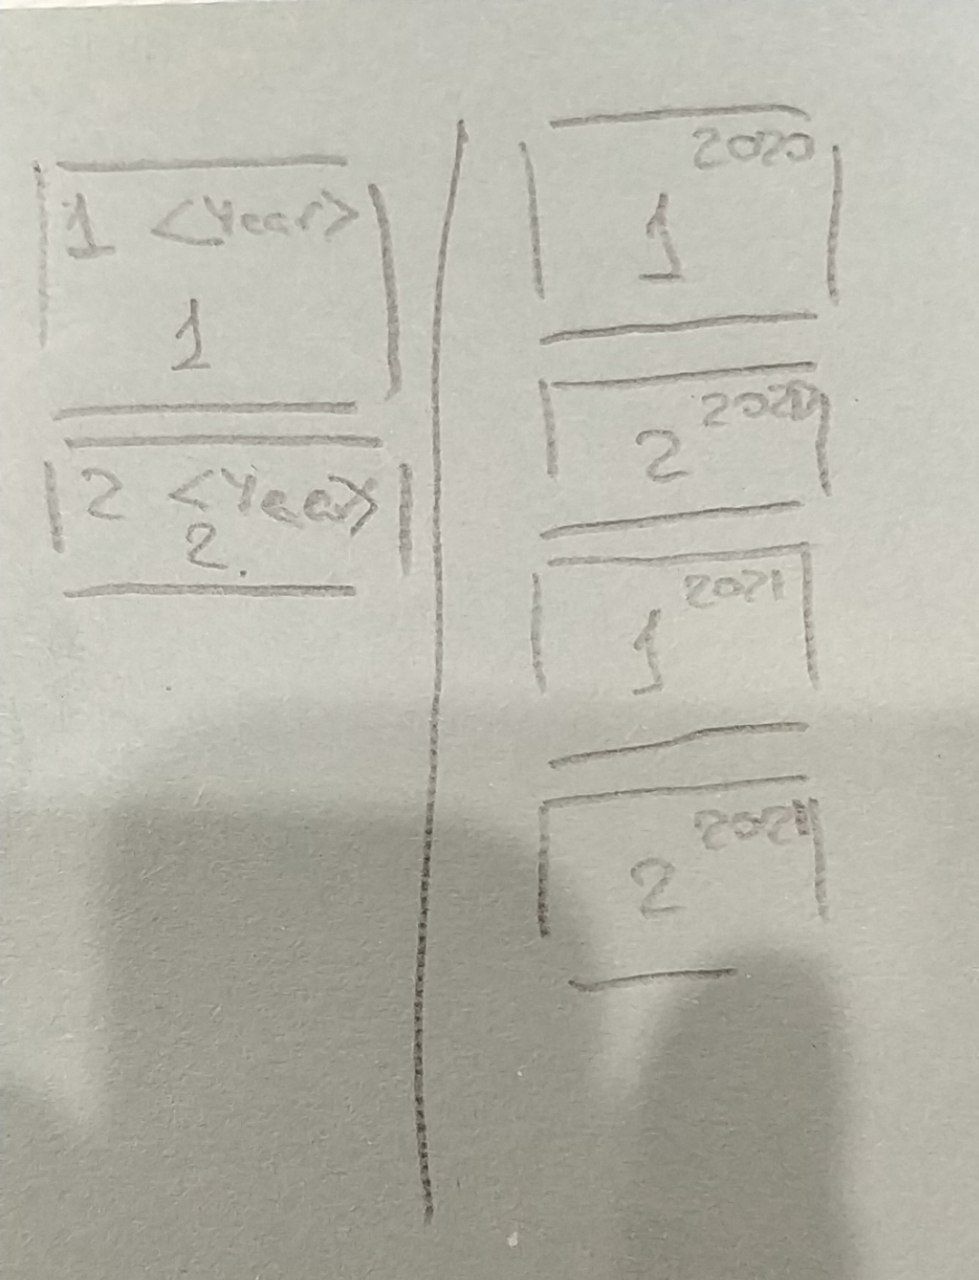 1 <Year>
1
2 <Year>
2.
2020
1
2
2021
1
2021
2